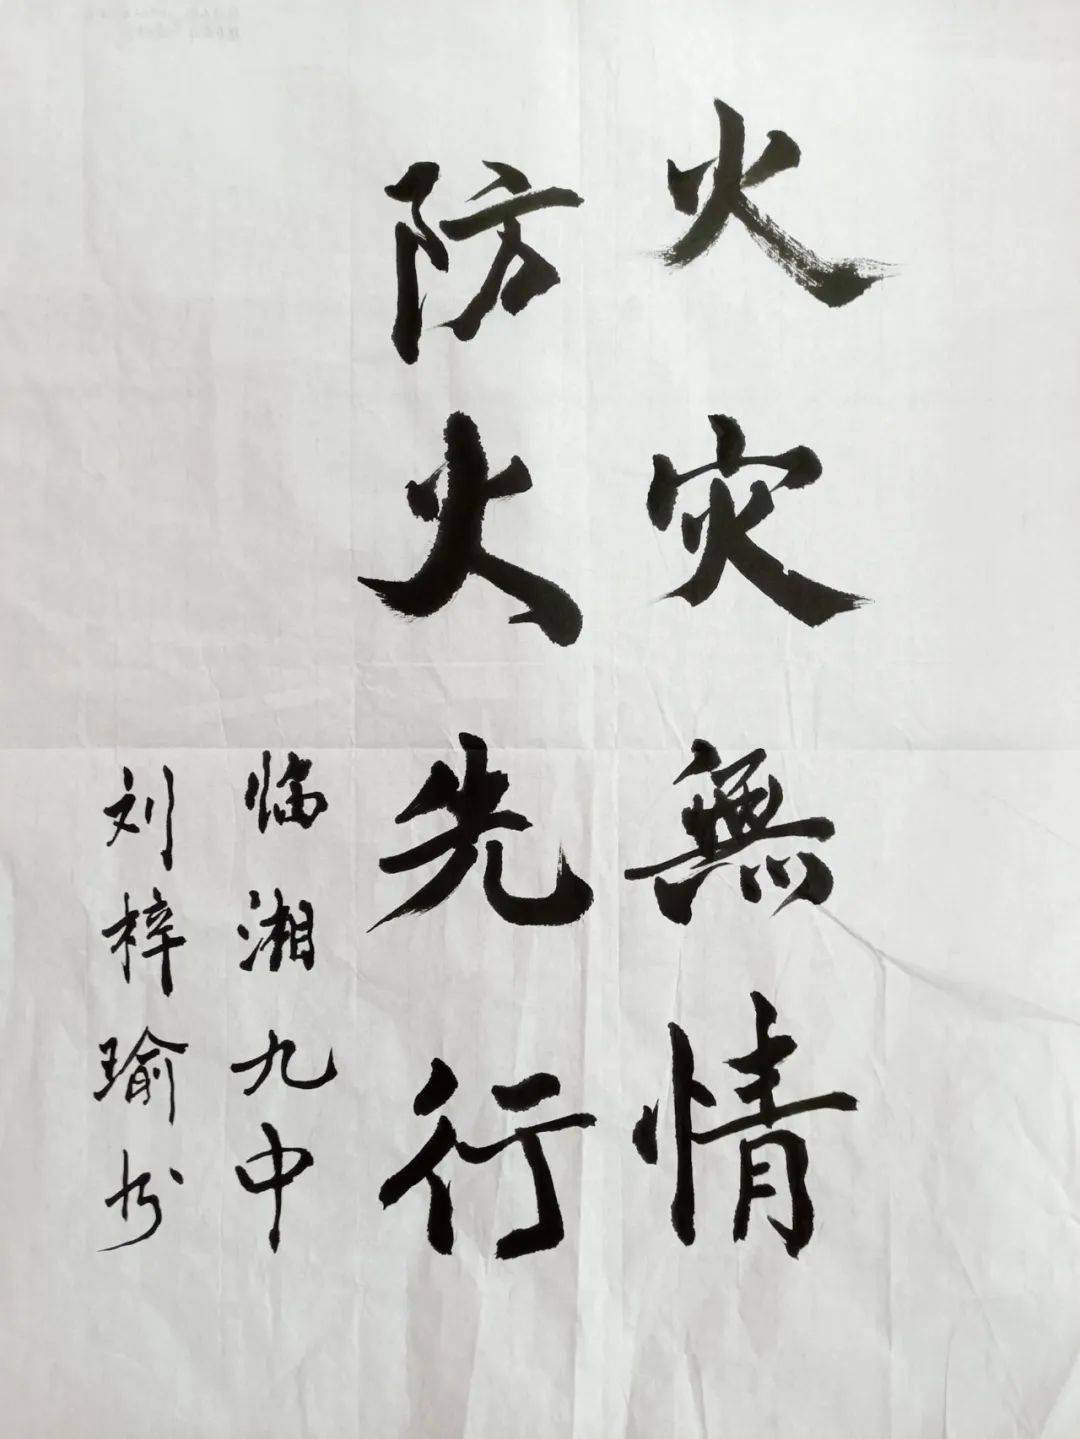 火灾無情
防火先行
临湘九中
刘梓瑜书